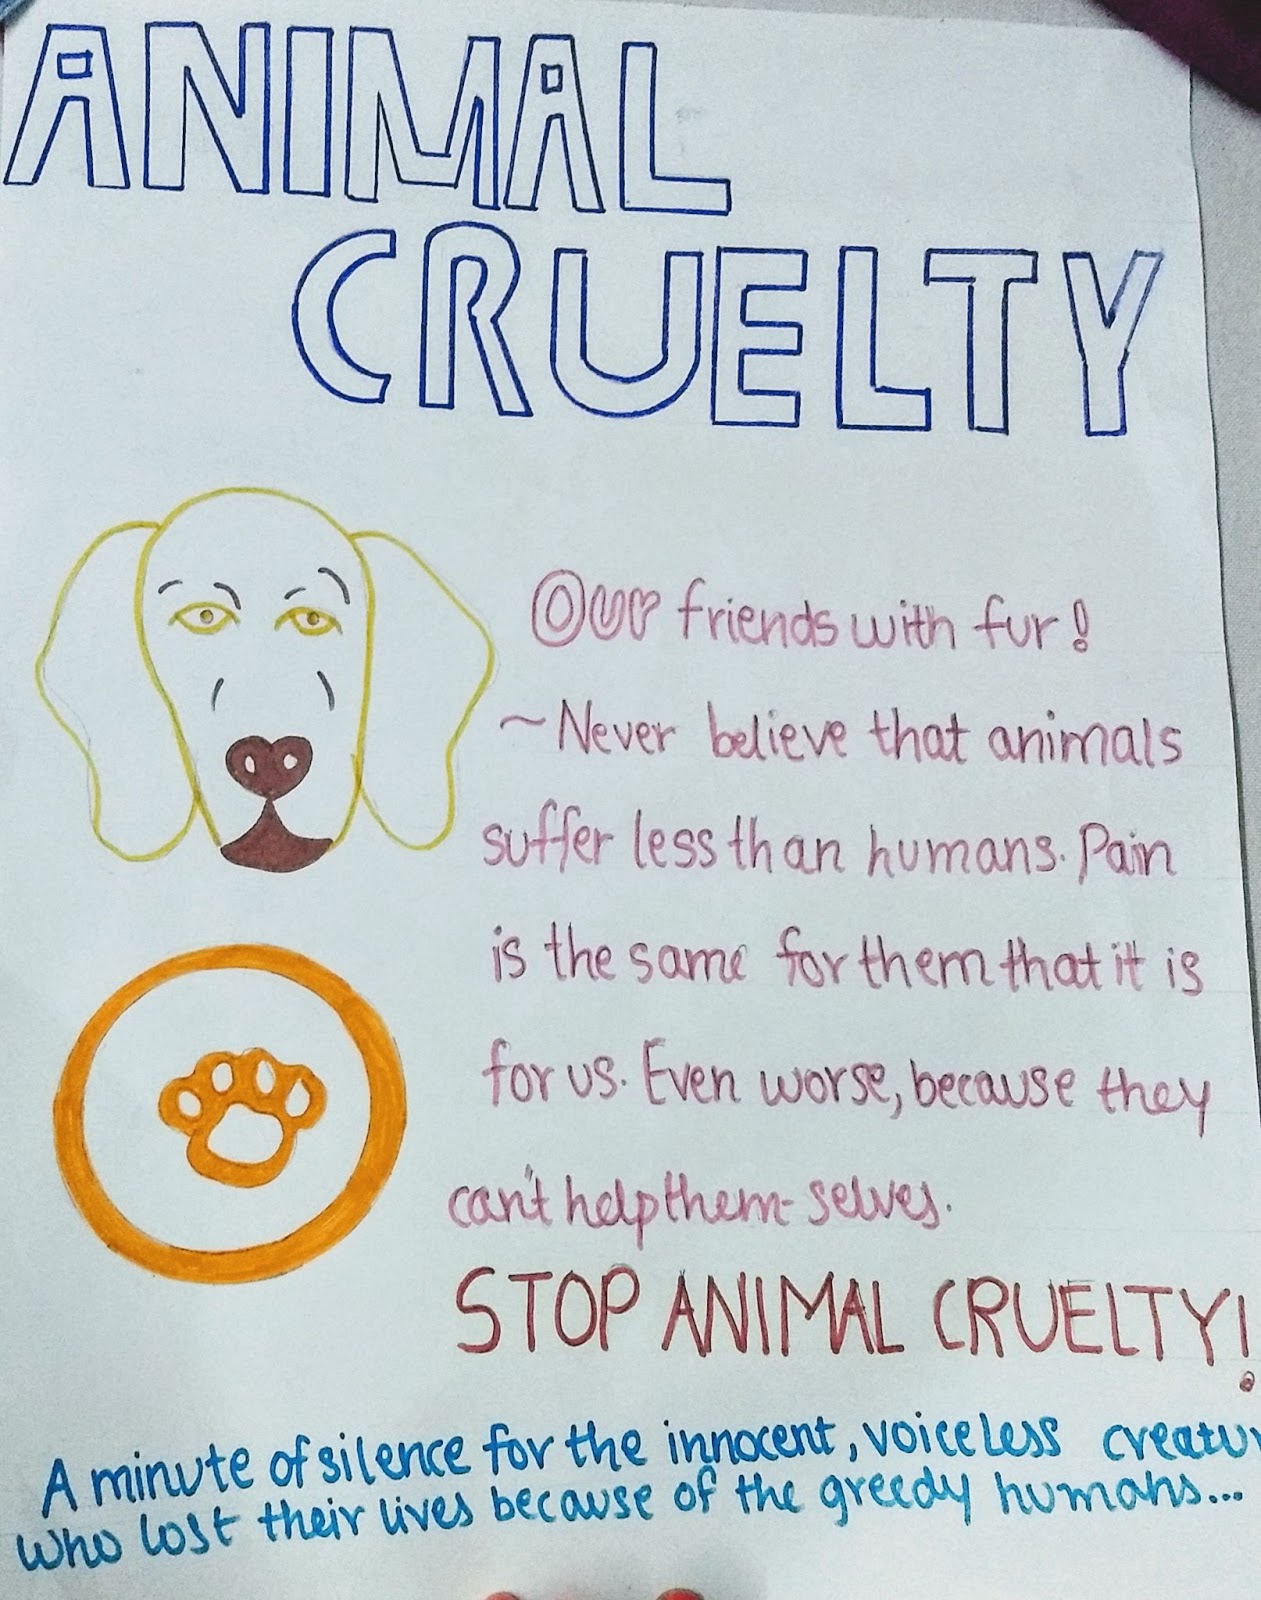 ANIMAL
CRUELTY
Our friends with fur!
~Never believe that animals
suffer less than humans. Pain
is the same for them that it is
for us. Even worse, because they
can't help them-selves.
STOP ANIMAL CRUELTY!
A minute of silence for the innocent, voiceless
who lost their lives because of the greedy humans...